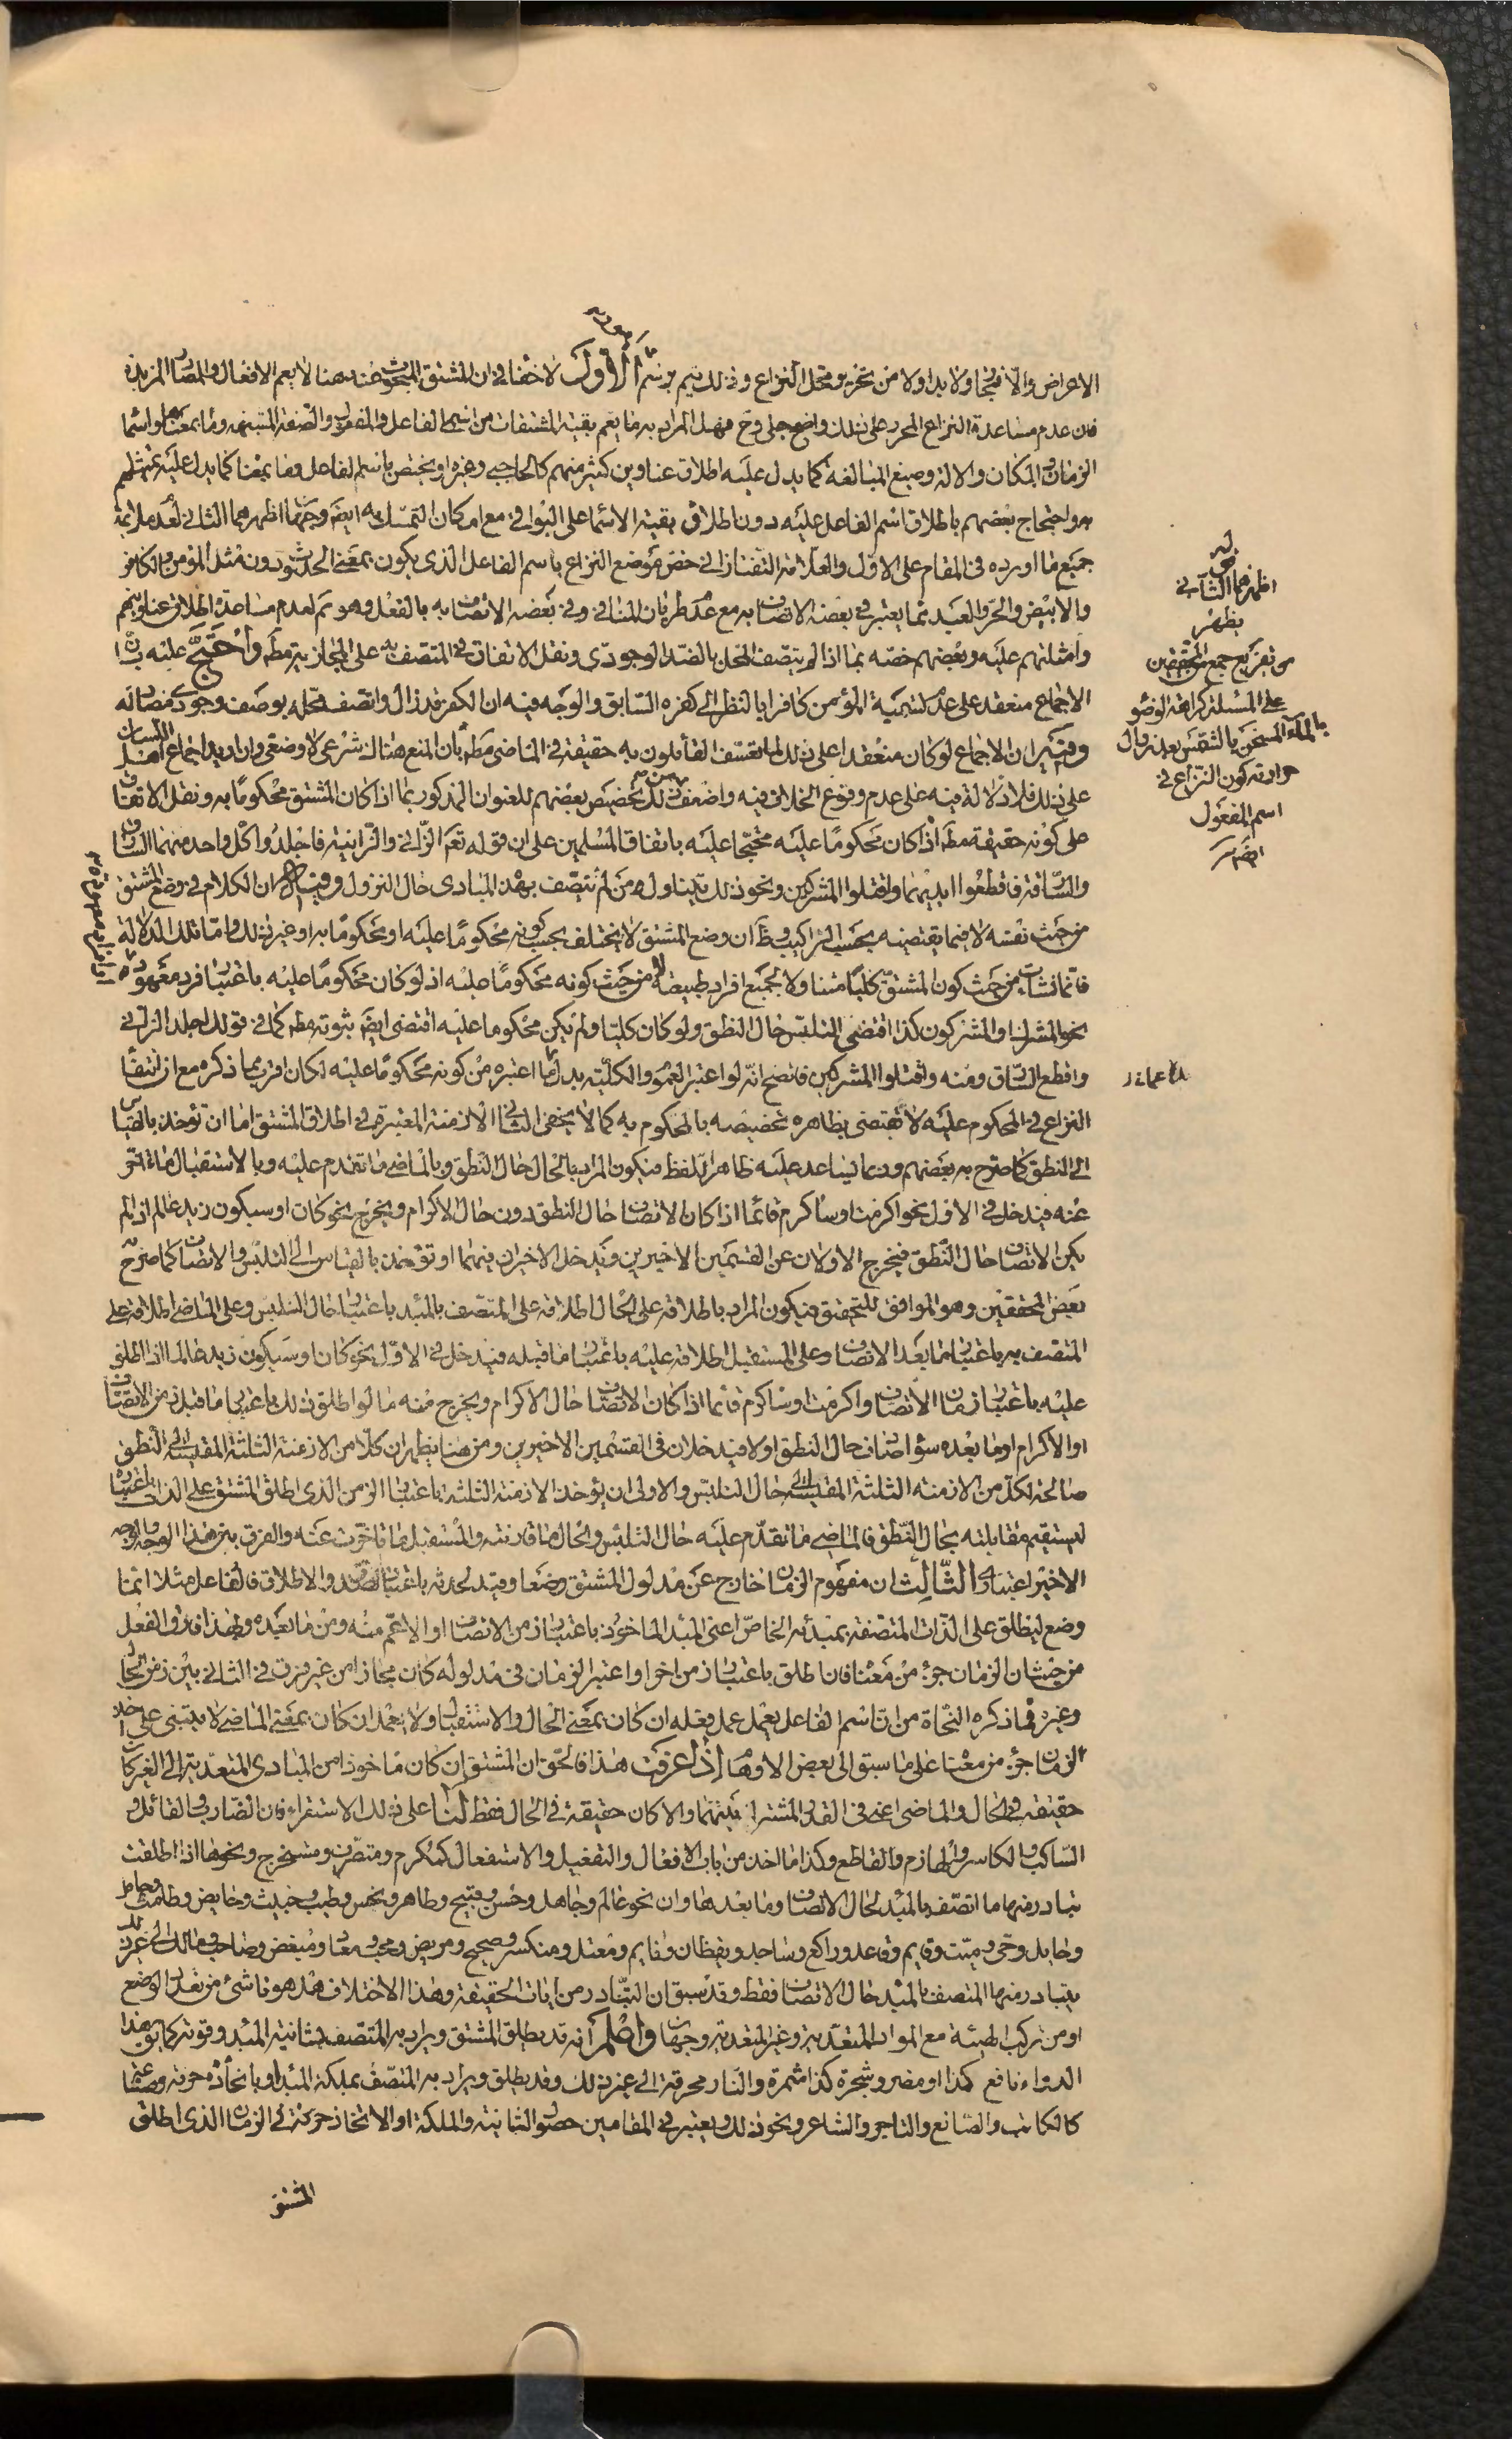 الاعراض والا فمجاز ولا بد اولا من تحرير محل النزاع وذلك يتم برسم امور الاول لا خفاء في ان المشتق المبحوث عنه هنا لا يعم الافعال والمصادر المزيدة
فان عدم مساعدة النزاع المحرر على ذلك واضح جلي وح فهل المراد به ما يعم بقية المشتقات من اسمى الفاعل والمفعول والصفة المشبهة وما بمعناها واسماء
الزمان والمكان والآلة وصيغ المبالغة كما يدل عليه اطلاق عناوين كثير منهم كالحاجبي وغيره او يختص باسم الفاعل وما بمعناه كما يدل عليه تمثيلهم
به واحتجاج بعضهم باطلاق اسم الفاعل عليه دون اطلاق بقية الاسماء على البواقي مع امكان التمسك به ايضا وجهان اظهرهما الثاني لعدم ملائمة
جميع ما اورده في المقام على الاول والعلامة التفتازاني خص موضع النزاع باسم الفاعل الذى يكون بمعنى الحدوث دون مثل المؤمن والكافر
والابيض والحر والعبد مما يعتبر في بعضه الاتصاف به مع عدم طريان المنافي وفي بعضه الاتصاف به بالفعل وهو تم لعدم مساعدة اطلاق عناوينهم
وامثلتهم عليه وبعضهم خصه بما اذا لم يتصف المحل بالضد الوجودى ونقل الاتفاق في المتصف به على المجازية مط واحتج عليه بان
الاجماع منعقد على عدم تسمية المؤمن كافرا بالنظر الى كفره السابق والوجه فيه ان الكفر قد زال واتصف محله بوصف وجودى مضاد له
وفيه ان الاجماع لو كان منعقدا على ذلك لما تعسف القائلون به حقيقة في الماضى مط بان المنع هناك شرعى لا وضعى وان اريد اجماع اهل اللسان
على ذلك فلا دلالة فيه على عدم وقوع الخلاف فيه واضعف من ذلك تخصيص بعضهم للعنوان المذكور بما اذا كان المشتق محكوما به ونقل الاتفاق
على كونه حقيقة مط اذا كان محكوما عليه محتجا عليه باتفاق المسلمين على ان قوله تعم الزانى والزانية فاجلدوا كل واحد منهما السارق
والسارقة فاقطعوا ايديهما واقتلوا المشركين ونحو ذلك يتناول من لم يتصف بهذه المبادى حال النزول وفيه ان الكلام في وضع المشتق
من حيث نفسه لا فيما يقتضيه بحسب التراكيب وظ ان وضع المشتق لا يختلف بحسب كونه محكوما عليه او محكوما به او غير ذلك واما تلك الدلالة
فانما نشات من حيث كون المشتق كليا متناولا لجميع افراد طبيعته لا من حيث كونه محكوما عليه اذ لو كان محكوما عليه باعتبار فرد معهود
نحو المشرك او المشركون كذا اقتضى التلبس حال النطق ولو كان كليا ولم يكن محكوما عليه اقتضى ايضا ثبوته مط كما في قولك اجلد الزانى
واقطع السارق ومنه واقتلوا المشركين فاتضح انه لو اعتبر العموم والكلية بدل ما اعتبره من كونه محكوما عليه لكان اقرب مما ذكره مع ان انتفاء
النزاع في المحكوم عليه لا يقتضى بظاهره تخصيصه بالمحكوم به كما لا يخفى الثاني الازمنة المعتبرة في اطلاق المشتق اما ان تؤخذ بالقياس
الى النطق كما صرح به بعضهم وربما يساعد عليه ظاهر اللفظ فيكون المراد بالحال حال النطق وبالماضى ما تقدم عليه وبالاستقبال ما تاخر
عنه فيدخل في الاول نحو اكرمت او ساكرم قائما اذا كان الاتصاف حال النطق دون حال الاكرام ويخرج نحو كان او سيكون زيد عالما اذا لم
يكن الاتصاف حال النطق فيخرج الاولان عن القسمين الاخيرين ويدخل الاخيران فيهما او تؤخذ بالقياس الى التلبس والاتصاف كما صرح به
بعض المحققين وهو الموافق للتحقيق فيكون المراد باطلاقه على الحال اطلاقه على المتصف بالمبدء باعتبار حال التلبس وعلى الماضى اطلاقه على
المتصف به باعتبار ما بعد الاتصاف وعلى المستقبل اطلاقه عليه باعتبار ما قبله فيدخل في الاول نحو كان او سيكون زيد عالما اذا اطلق
عليه باعتبار زمان الاتصاف واكرمت او ساكرم قائما اذا كان الاتصاف حال الاكرام ويخرج منه ما لو اطلق ذلك باعتبار ما قبل زمن الاتصاف
او الاكرام او ما بعده سواء اتصف حال النطق او لا فيدخلان في القسمين الاخيرين ومن هنا يظهر ان كلا من الازمنة الثلثة المقيسة الى النطق
صالحة لكل من الازمنة الثلثة المقيسة الى حال التلبس والاولى ان يؤخذ الازمنة الثلثة باعتبار الزمن الذى اطلق المشتق على الذات باعتباره
ليستقيم مقابلته بحال النطق فالماضى ما تقدم عليه حال التلبس والحال ما قارنته والمستقبل ما تاخرت عنه والفرق بين هذا الوجه والوجه
الاخير اعتبارى الثالث ان مفهوم الزمان خارج عن مدلول المشتق وضعا وقيد لحدثه باعتبار الصدق والاطلاق فالفاعل مثلا انما
وضع ليطلق على الذات المتصفة بمبدئه الخاص اعنى المبدء الماخوذ باعتبار زمن الاتصاف او الاعم منه ومن ما بعده وبهذا فارق الفعل
من حيث ان الزمان جزء من معناه فان اطلق باعتبار زمن اخر او اعتبر الزمان في مدلوله كان مجازا من غير فرق في الثاني بين زمن الحال
وغيره فما ذكره النحاة من ان اسم الفاعل يعمل عمل فعله ان كان بمعنى الحال والاستقبال ولا يعمل ان كان بمعنى الماضى لا يبتنى على اخذ
الزمان جزء من معناه على ما سبق الى بعض الاوهام اذا عرفت هذا فالحق ان المشتق ان كان ماخوذا من المبادى المتعدية الى الغير كان
حقيقة في الحال والماضى اعنى في القدر المشترك بينهما والا كان حقيقة في الحال فقط لنا على ذلك الاستقراء فان الضارب والقاتل و
الساكب والكاسر والهازم والقاطع وكذا ما اخذ من باب الافعال والتفعيل والاستفعال كمكرم ومتصرف ومستخرج ونحوها اذا اطلقت
تبادر منها ما اتصف بالمبدء حال الاتصاف وما بعدها وان نحو عالم وجاهل وحسن وقبيح وطاهر ونجس وطيب وخبيث وحايض وطامث وحامل
وحايل وحى وميت وقايم وقاعد وراكع وساجد ويقظان ونايم ومعتدل ومنكسر وصحيح ومريض ومحب ومعاد ومبغض وصاحب ومالك الى غير ذلك
يتبادر منها المتصف بالمبدء حال الاتصاف فقط وقد سبق ان التبادر من ايات الحقيقة وهذا الاختلاف هل هو ناشئ من تعدد الوضع
او من تركب الهيئة مع المواد المتعدية وغير المتعدية وجهان واعلم انه قد يطلق المشتق ويراد به المتصف بشانية المبدء وقوته كما يق هذا
الدواء نافع كذا او مضر وشجرة كذا مثمرة والنار محرقة الى غير ذلك وقد يطلق ويراد به المتصف بملكة المبدء او باتخاذه حرفة وصناعة
كالكاتب والصانع والتاجر والشاعر ونحو ذلك ويعتبر في المقامين حصول الشانية والملكة او الاتخاذ حرفة في الزمان الذى اطلق
المشتق
قوله
اظهرهما الثاني
يظهر
من تفريع جمع من المحققين
على المسئلة كراهة الوضوء
بالماء المسخن بالشمس بعد زوال
حرارته كون النزاع في
اسم المفعول
ايضا